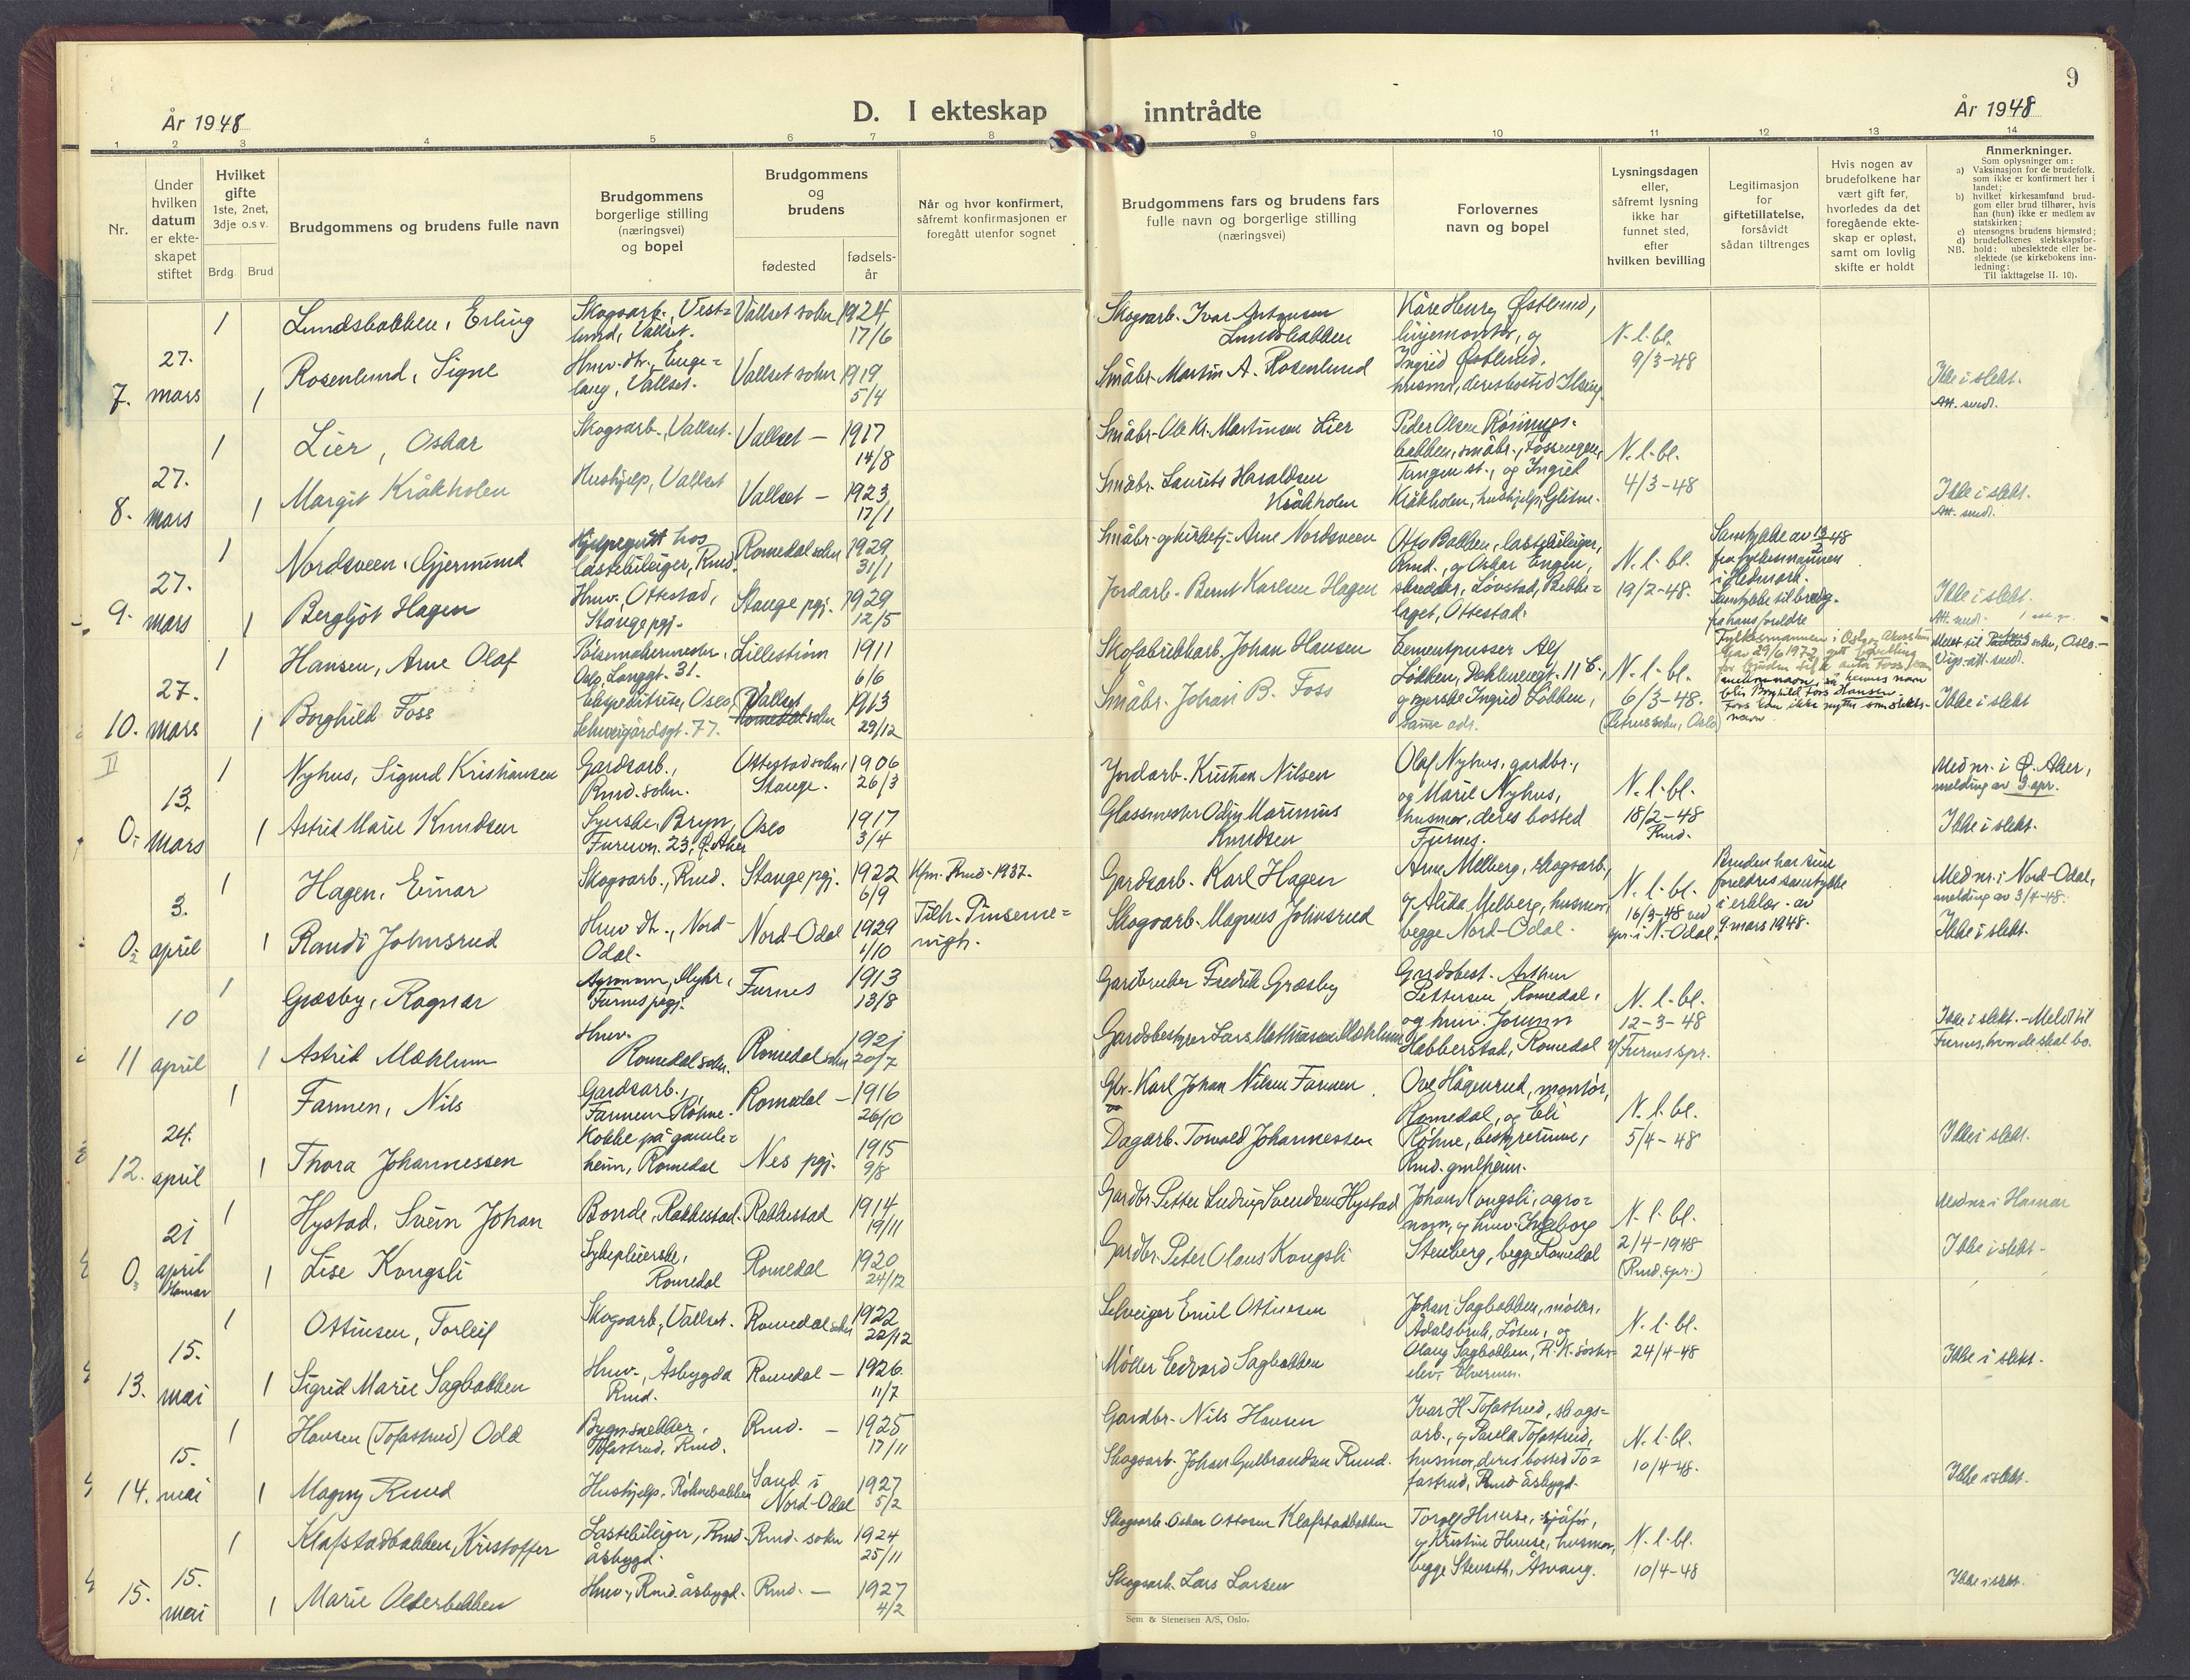 År 1948
D. I ekteskap inntrådte
År 1948
9
1 2 3 4 5 6 7 8 9 10 11 12 13 14
Nr.
Under hvilken datum er ekteskapet stiftet
Hvilket gifte 1ste, 2net, 3dje o.s v.
Brdg. Brud
Brudgommens og brudens fulle navn
Brudgommens borgerlige stilling (næringsvei) og bopel
Brudgommens og brudens
fødested
fødselsår
Når og hvor konfirmert, såfremt konfirmasjonen er foregått utenfor sognet
Brudgommens fars og brudens fars fulle navn og borgerlige stilling (næringsvei)
Forlovernes navn og bopel
Lysningsdagen eller, såfremt lysning ikke har funnet sted, efter hvilken bevilling
Legitimasjon for giftetillatelse, forsåvidt sådan tiltrenges
Hvis nogen av brudefolkene har vært gift før, hvorledes da det foregående ekteskap er opløst, samt om lovlig skifte er holdt
Anmerkninger.
Som oplysninger om:
a) Vaksinasjon for de brudefolk. som ikke er konfirmert her i landet;
b) hvilket kirkesamfund brudgom eller brud tilhører, hvis han (hun) ikke er medlem av statskirken;
c) utensogns brudens hjemsted;
d) brudefolkenes slektskapsforhold: ubeslektede eller beslektede (se kirkebokens innledning:
NB. Til iakttagelse II. 10).
7. 27. mars
1 Lundsbakken, Erling
Skogsarb., Vestlund, Vallset.
Vallset sokn 1924 17/6
Skogsarb. Ivar Antonsen Lundsbakken
Kåre Henry Østlund, linjemontør, og Ingrid Østlund, husmor, deres bosted Ilseng
N. l. bl. 9/3-48
1 Rosenlund, Signe
Husv. dtr., Engelaug, Vallset.
Vallset sokn 1919 5/4
Småbr. Martin A. Rosenlund
Ikke i slekt.
Att. sendt.
8. 27. mars
1 Lier, Oskar
Skogsarb., Vallset.
Vallset — 1917 14/8
Småbr. Ole Kr. Martinsen Lier
Peder Olsen Røsningsbakken, småbr., Fossengen, Tangen st., og Ingrid Kråkholen, hushjelp, Glitne.
N. l. bl. 4/3-48
1 Margit Kråkholen
Hushjelp, Vallset
Vallset — 1923 17/1
Småbr. Laurits Haraldsen Kråkholen
Ikke i slekt.
Att. sendt.
9. 27. mars
1 Nordsveen, Gjermund
Hjelpegutt hos lastebileiger, Rmd.
Romedal sokn 1929 31/1
Småbr. og kirketj. Arne Nordsveen
Otto Bakken, lastebileiger, Rmd., og Oskar Engen, skredder, Løvstad, Bekkelaget, Ottestad.
N. l. bl. 19/2-48.
Samtykke av 13/2-48 fra fylkesmannen i Hedmark. Samtykke til brudg. fra hans foreldre
1 Bergljot Hagen
Husv., Ottestad, Stange pgj.
Stange pgj. 1929 12/5
Jordarb. Bernt Karlsen Hagen
Ikke i slekt.
Att. sendt.
10. 27. mars
1 Hansen, Arne Olaf
Pølsemakermester, Oslo, Langgt. 31.
Lillestrøm 1911 6/6
Skofabrikkarb. Johan Hansen
Cementpusser Alf Løkken, Dæhlenengt. 11 b., og syerske Ingrid Løkken, samme adr.
N. l. bl. 6/3-48. (Petrus sokn, Oslo)
Fylkesmannen i Oslo og Akershus gav 29/6 1972 gitt bevilling for bruden til å anta Foss som mellomnavn, så hennes navn blir Borghild Foss Hansen. Foss kan ikke nyttes som slektsnavn.
1 Borghild Foss
Ekspeditrise, Oslo, Schweigårdsgt. 77.
Vallset sokn 1913 29/12
Småbr. Johan B. Foss
Meldt til Petrus sokn, Oslo.
Vigs.att. sendt.
Ikke i slekt
II
0. 13. mars
1 Nyhus, Sigurd Kristiansen
Gardsarb., Rmd. sokn.
Ottestad sokn, Stange. 1906 26/3
Jordarb. Kristian Nilsen
Olaf Nyhus, gardbr., og Marie Nyhus, husmor, deres bosted Furnes.
N. l. bl. 18/2-48 Rmd.
Med nr. i Ø. Aker, melding av 3 apr.
1 Astrid Marie Knudsen
Syerske, Bryn, Furuvn. 23, Ø. Aker
Oslo 1917 3/4
Glassmester Odin Marinius Knudsen
Ikke i slekt.
0. 3. april
1 Hagen, Einar
Skogsarb., Rmd.
Stange pgj. 1922 6/9
Kfm. Rmd. 1937.
Gardsarb. Karl Hagen
Arne Melberg, skogsarb., og Alida Melberg, husmor, begge Nord-Odal.
N. l. bl. 16/3-48 ved spr. i N. Odal.
Bruden har sine foreldres samtykke i erklær. av 9. mars 1948.
Med nr. i Nord-Odal, melding av 3/4-48.
1 Randi Johnsrud
Husv. dtr., Nord-Odal.
Nord-Odal 1929 1/10
Tilh. Pinsemenigh.
Skogsarb. Magnus Johnsrud
Ikke i slekt.
11 10 april
1 Græsby, Ragnar
Agronom, Myhr, Furnes pgj.
Furnes 1913 13/8
Gardbruker Fredrik Græsby
Gardsbest. Arthur Pettersen, Romedal, og husv. Jorunn Habberstad, Romedal
N. l. bl. 12-3-48 v/ Furnes spr.
1 Astrid Mæhlum
Husv. Romedal sokn.
Romedal sokn 1921 20/7
Gardsbestyrer Lars Mathiassen Mæhlum
Ikke i slekt. - Meldt til Furnes, hvor de skal bo.
12. 24. april
1 Farmen, Nils
Gardsarb., Farmen, Røhne.
Romedal — 1916 26/10
Gbr. Karl Johan Nilsen Farmen
Ove Hågenrud, montør, Romedal, og Eli Røhne, bestyrerinne, Rmd. gmlheim.
N. l. bl. 5/4-48
1 Thora Johannessen
Kokke på gamleheim, Romedal
Nes pgj. 1915 9/8
Dagarb. Torvald Johannessen
Ikke i slekt.
0. 21 april Hamar
1 Hystad, Svein Johan
Bonde, Rakkestad.
Rakkestad 1914 19/11
Gardbr. Petter Ludvig Svendsen Hystad
Johan Kongsli, agronom, og husv. Ingeborg Stenberg, begge Romedal
N. l. bl. 2/4-1948 (Rmd. spr.)
Med nr. i Hamar
1 Lise Kongsli
Sykepleierske, Romedal
Romedal 1920 24/12
Gardbr. Peter Olaus Kongsli
Ikke i slekt.
13. 15. mai
1 Ottinsen, Torleif
Skogsarb., Vallset.
Romedal sokn 1922 22/12
Selveiger Emil Ottinsen
Johan Sagbakken, møller, Ådalsbruk, Løten, og Olaug Sagbakken, R.K. søsterelev, Elverum.
N. l. bl. 24/4-48
1 Sigrid Marie Sagbakken
Husv., Åsbygda Rmd.
Romedal — 1926. 11/7
Møller Edvard Sagbakken
Ikke i slekt.
14. 15. mai
1 Hansen (Tofastrud) Odd
Bygn.snekker, Tofastrud, Rmd.
Rmd. — 1925 17/11
Gardbr. Nils Hansen
Ivar H. Tofastrud, skogsarb., og Paula Tofastrud, husmor, deres bosted Tofastrud, Rmd. åsbygd.
N. l. bl. 10/4-48.
1 Magny Ruud
Hushjelp, Røhnebakken
Sand i Nord-Odal 1927 5/2
Skogsarb. Johan Gulbrandsen Ruud.
Ikke i slekt.
15. 15. mai
1 Klafstadbakken, Kristoffer
Lastebileiger, Rmd. åsbygd.
Rmd. sokn 1924 25/11
Skogsarb. Oskar Ottosen Klafstadbakken
Torolf Huuse, sjåfør, og Kristine Huuse, husmor, begge Stenseth, Åsvang.
N. l. bl. 10/4-48
1 Marie Olderbakken
Husv., Rmd. åsbygd.
Rmd. — 1927 4/2
Skogsarb. Lars Larsen
Ikke i slekt.
Sem & Stenersen A/S, Oslo.